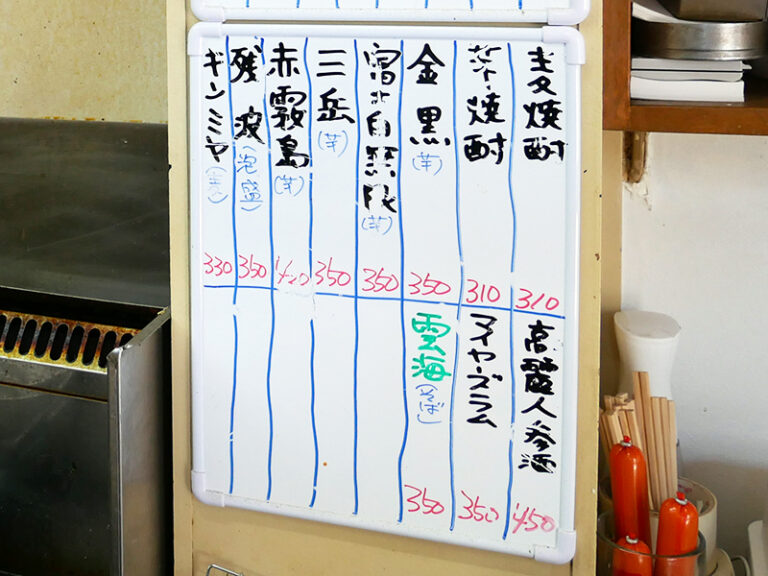 麦焼酎
310
芋焼酎
310
金黒
(芋)
350
富乃白無限
(芋)
350
三岳
(芋)
350
赤霧島
(芋)
420
残波
(泡盛)
350
キンミヤ
330
高麗人参酒
450
マイヤーズラム
350
雲海
(そば)
350